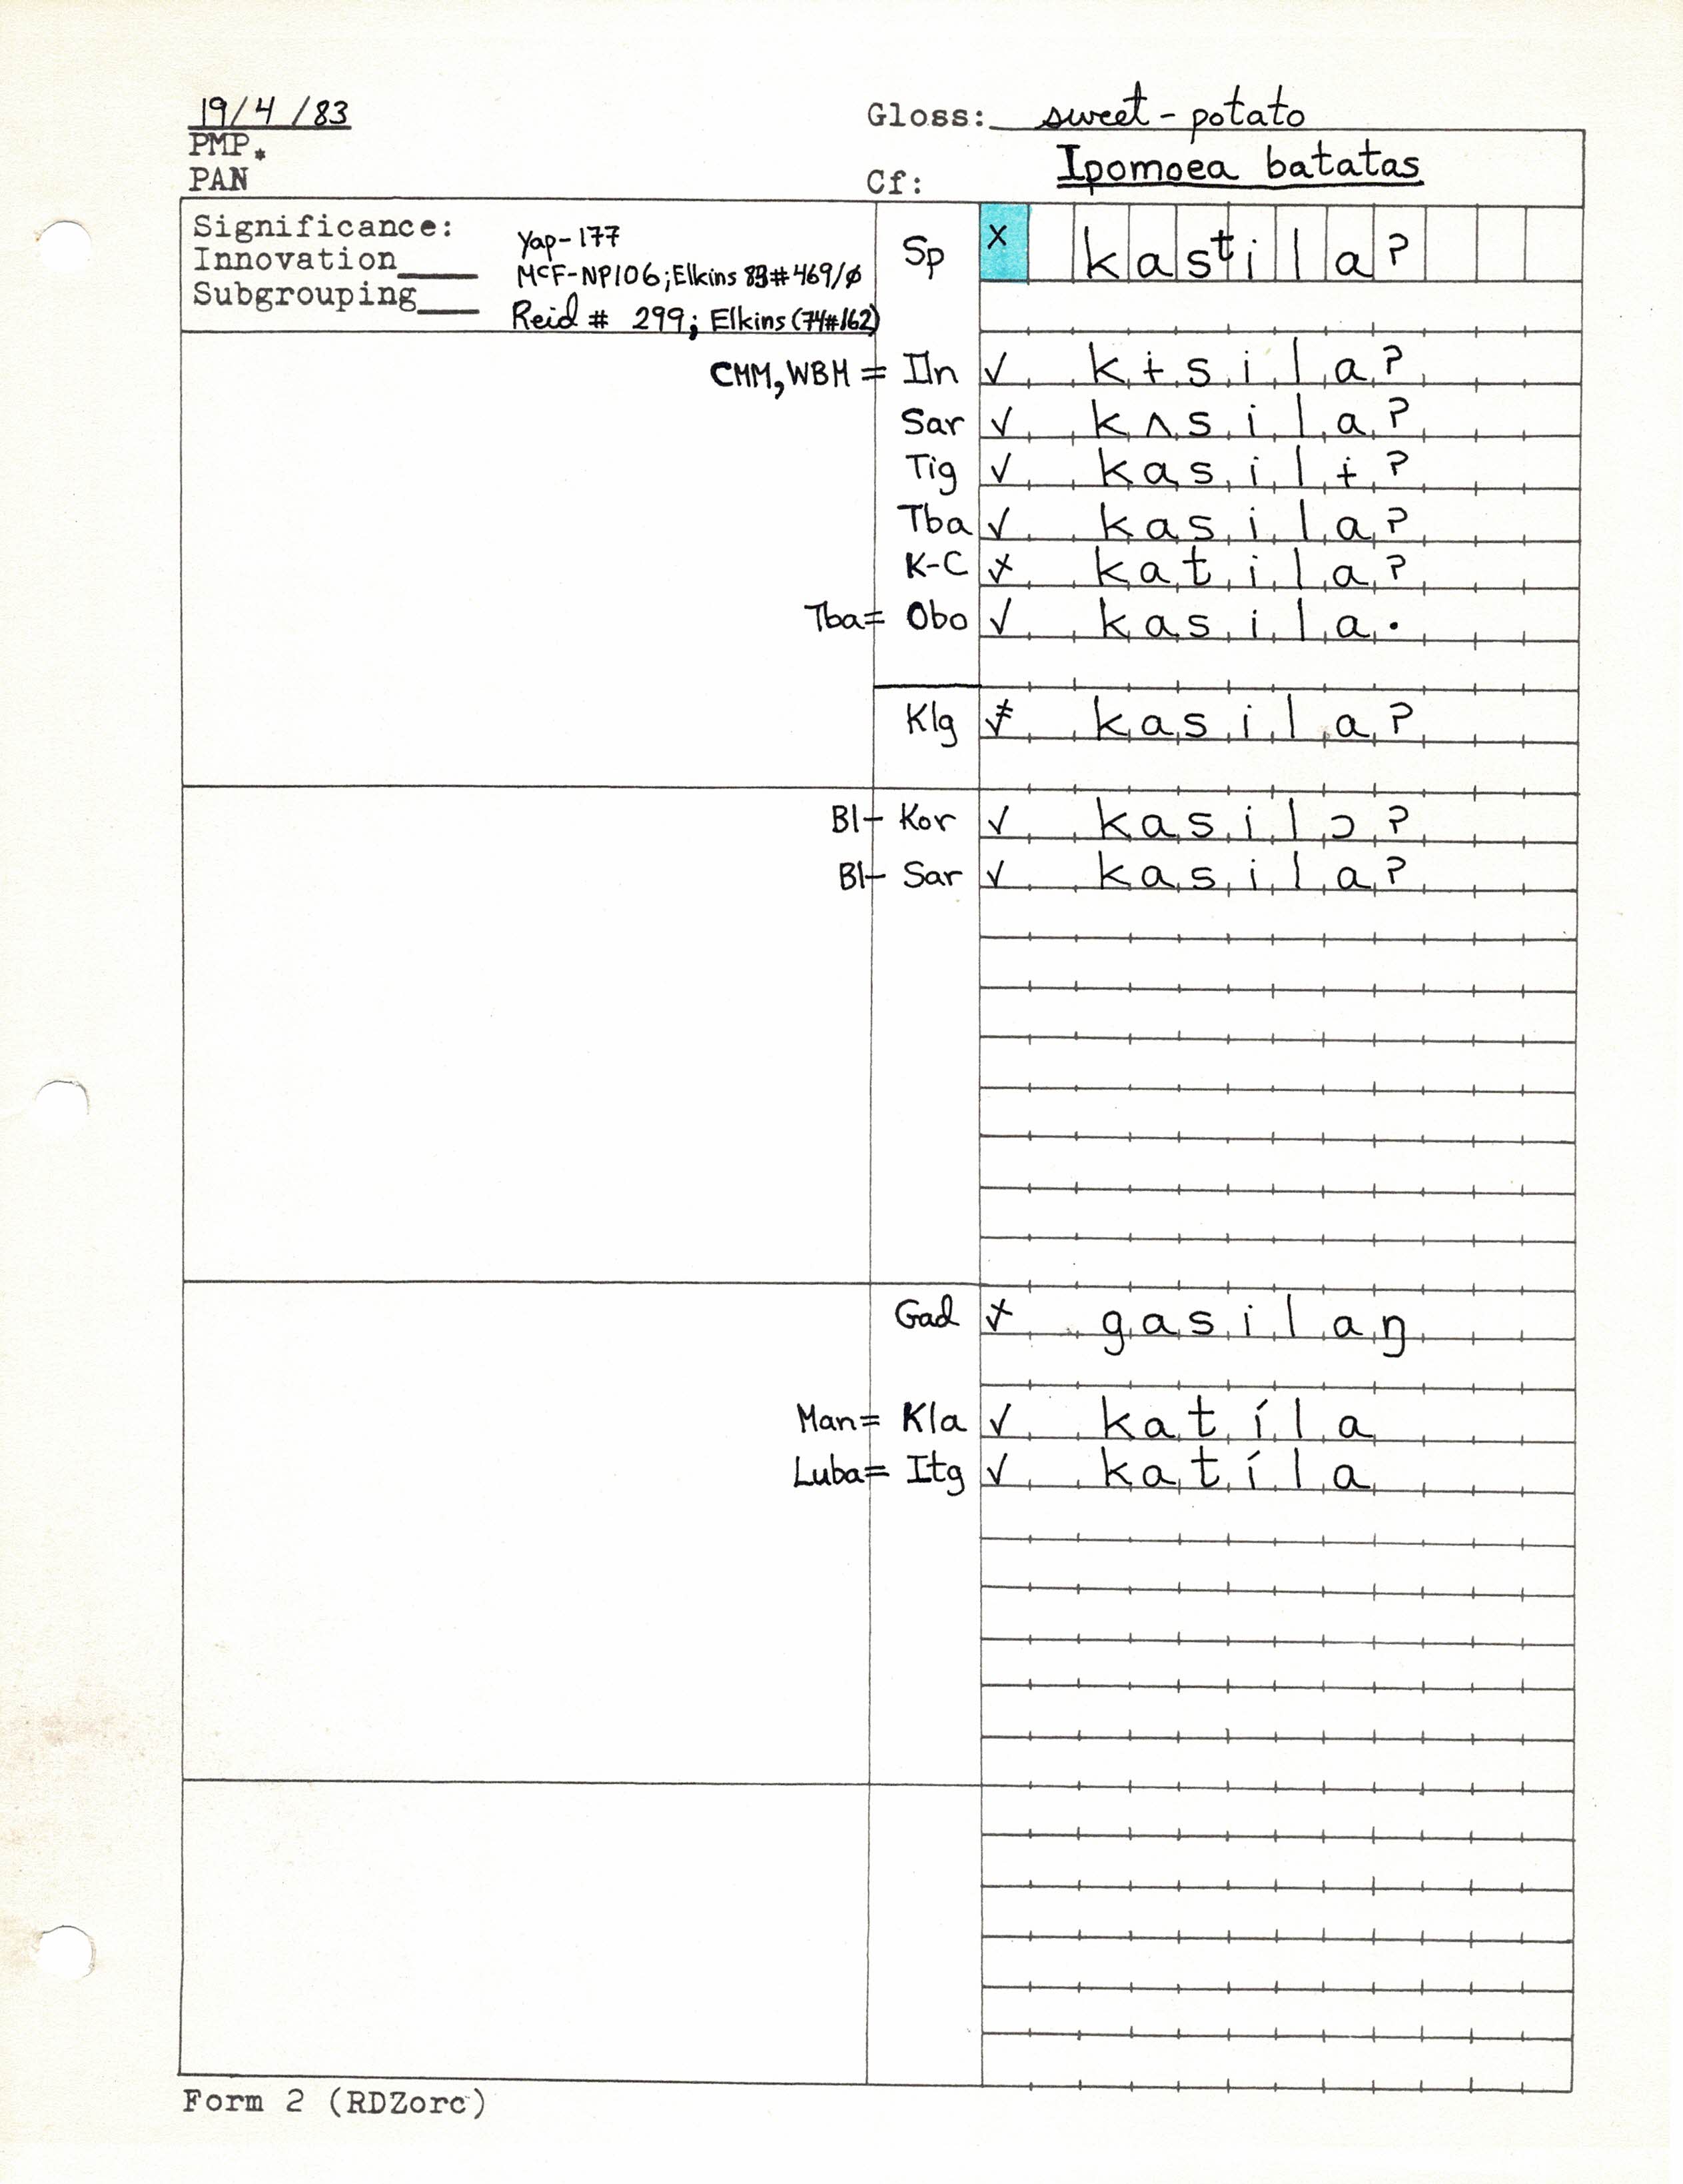 19/4/83
Gloss: sweet-potato
PMP*
PAN
Cf: Ipomoea batatas
Significance:
Innovation
Subgrouping
Yap-177
McF-NP106; Elkins 83#469/ø
Reid # 299; Elkins (74#162)
Sp x kastilaʔ
CMM, WBM = Iln ✓ kɨsilaʔ
Sar ✓ kʌsilaʔ
Tig ✓ kasilɨʔ
Tba ✓ kasilaʔ
K-C ✓ katilaʔ
Tba= Obo ✓ kasila·
Klg ✓ kasilaʔ
Bl- Kor ✓ kasilɔʔ
Bl- Sar ✓ kasilaʔ
Gad ✓ gasilaŋ
Man= Kla ✓ katíla
Luba= Itg ✓ katíla
Form 2 (RDZorc)